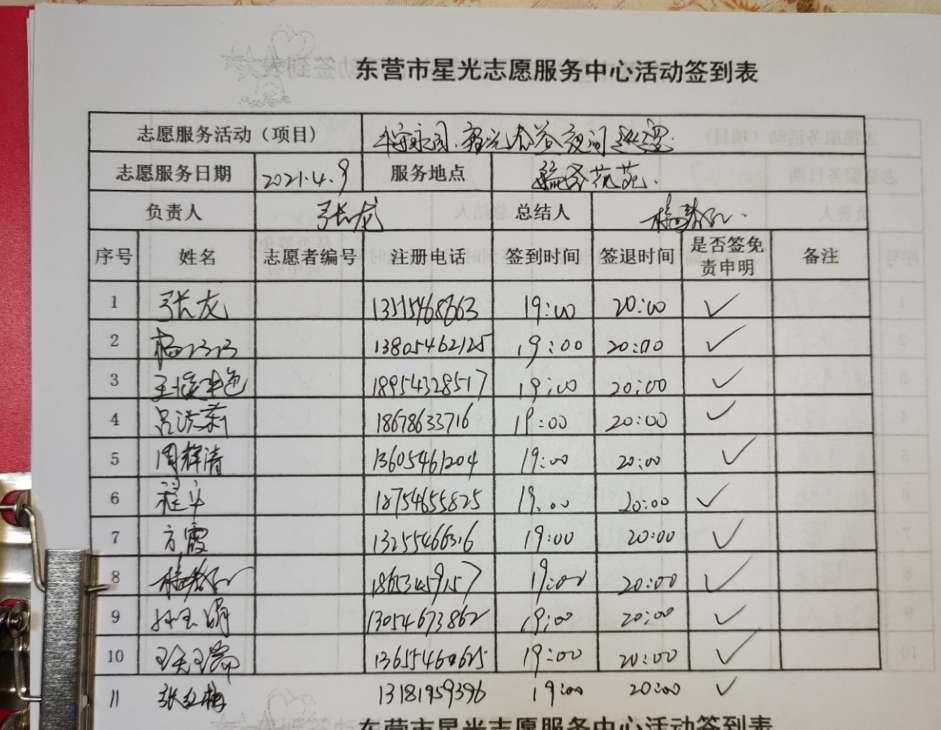 东营市星光志愿服务中心活动签到表
志愿服务活动（项目） 夜间巡逻
志愿服务日期 2021.4.9 服务地点 苑.
负责人 张龙 总结人
序号 姓名 志愿者编号 注册电话 签到时间 签退时间 是否签免责申明 备注
1 张龙 13515468663 19:00 20:00 ✓
2 杨 13805462125 19:00 20:00 ✓
3 王 18954328517 19:00 20:00 ✓
4 吕洪莉 18678633716 19:00 20:00 ✓
5 周辉清 13605461204 19:00 20:00 ✓
6 程 18754655825 19:00 20:00 ✓
7 方霞 13255466316 19:00 20:00 ✓
8 19:00 20:00 ✓
9 孙玉娟 13054673862 19:00 20:00 ✓
10 王 13655460625 19:00 20:00 ✓
11 张红梅 13181959396 19:00 20:00 ✓
东营市星光志愿服务中心活动签到表